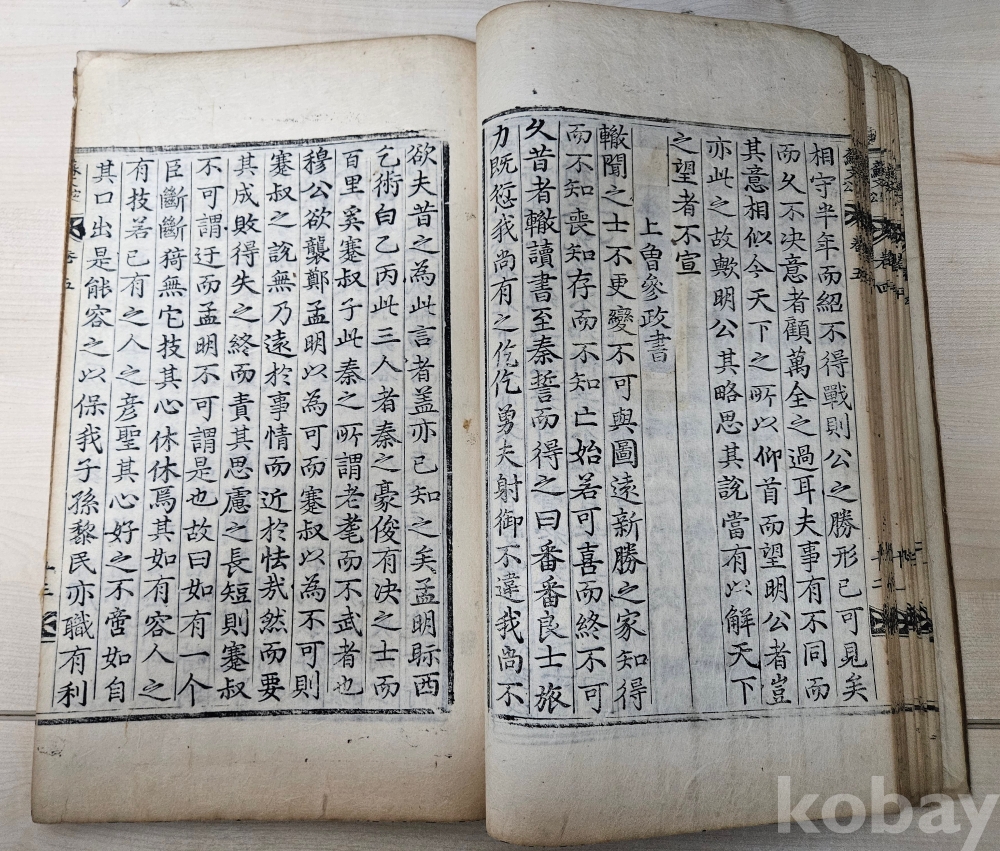 相守半年而紹不得戰則公之勝形已可見矣
而久不决意者顧萬全之過耳夫事有不同而
其意相似今天下之所以仰首而望明公者豈
亦此之故歟明公其略思其說當有以解天下
之望者不宣
上曾參政書
轍聞之士不更變不可與圖遠新勝之家知得
而不知喪知存而不知亡始若可喜而終不可
久昔者轍讀書至秦誓而得之曰番番良士旅
力既愆我尚有之仡仡勇夫射御不違我尚不
欲夫昔之為此言者盖亦已知之矣孟明眎西
乞術白乙丙此三人者秦之豪俊有决之士而
百里奚蹇叔子此秦之所謂老耄而不武者也
穆公欲襲鄭孟明以為可而蹇叔以為不可則
蹇叔之說無乃遠於事情而近於怯㦲然而要
其成敗得失之終而責其思慮之長短則蹇叔
不可謂迂而孟明不可謂是也故曰如有一个
臣斷斷猗無它技其心休休焉其如有容人之
有技若己有之人之彥聖其心好之不啻如自
其口出是能容之以保我子孫黎民亦職有利
卷五
十三
kobay